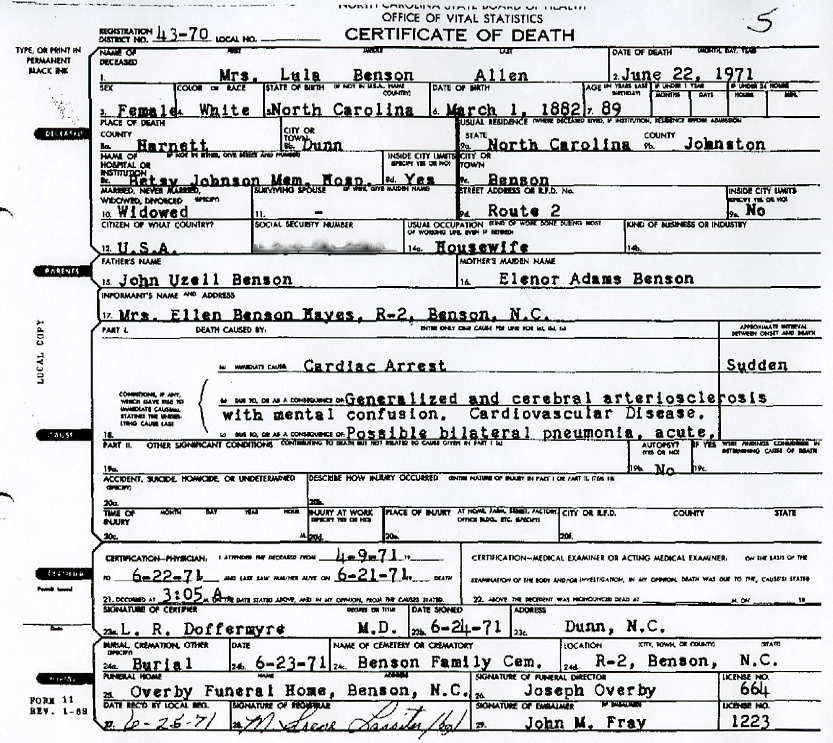 NORTH CAROLINA STATE BOARD OF HEALTH
OFFICE OF VITAL STATISTICS
5
REGISTRATION DISTRICT NO. 43-70 LOCAL NO.
CERTIFICATE OF DEATH
TYPE, OR PRINT IN PERMANENT BLACK INK
NAME OF DECEASED FIRST MIDDLE LAST DATE OF DEATH (MONTH, DAY, YEAR)
1. Mrs. Lula Benson Allen 2. June 22, 1971
SEX COLOR OR RACE STATE OF BIRTH (IF NOT IN U.S.A. NAME COUNTRY) DATE OF BIRTH AGE (IN YEARS LAST BIRTHDAY) IF UNDER 1 YEAR MONTHS DAYS IF UNDER 24 HOURS HOURS MIN.
3. Female 4. White 5. North Carolina 6. March 1, 1882 7. 89
DECEASED
PLACE OF DEATH USUAL RESIDENCE (WHERE DECEASED LIVED, IF INSTITUTION, RESIDENCE BEFORE ADMISSION
COUNTY CITY OR TOWN STATE COUNTY
8a. Harnett 8b. Dunn 9a. North Carolina 9b. Johnston
NAME OF HOSPITAL OR INSTITUTION IF NOT IN EITHER, GIVE STREET AND NUMBER INSIDE CITY LIMITS SPECIFY YES OR NO CITY OR TOWN
8c. Betsy Johnson Mem. Hosp. 8d. Yes 9c. Benson
MARRIED, NEVER MARRIED, WIDOWED, DIVORCED (SPECIFY) SURVIVING SPOUSE IF WIFE, GIVE MAIDEN NAME STREET ADDRESS OR R.F.D. No. INSIDE CITY LIMITS SPECIFY YES OR NO
10. Widowed 11. - 9d. Route 2 9e. No
CITIZEN OF WHAT COUNTRY? SOCIAL SECURITY NUMBER USUAL OCCUPATION (KIND OF WORK DONE DURING MOST OF WORKING LIFE, EVEN IF RETIRED KIND OF BUSINESS OR INDUSTRY
12. U.S.A. 14a. Housewife 14b.
PARENTS
FATHER'S NAME MOTHER'S MAIDEN NAME
15. John Uzell Benson 16. Elenor Adams Benson
INFORMANT'S NAME AND ADDRESS
17. Mrs. Ellen Benson Hayes, R-2, Benson, N.C.
LOCAL COPY
PART I. DEATH CAUSED BY: ENTER ONLY ONE CAUSE PER LINE FOR (a), (b), (c) APPROXIMATE INTERVAL BETWEEN ONSET AND DEATH
(a) IMMEDIATE CAUSE Cardiac Arrest Sudden
CONDITIONS, IF ANY, WHICH GAVE RISE TO IMMEDIATE CAUSE(a), STATING THE UNDERLYING CAUSE LAST
(b) DUE TO, OR AS A CONSEQUENCE OF: Generalized and cerebral arteriosclerosis
with mental confusion. Cardiovascular Disease.
CAUSE
18. (c) DUE TO, OR AS A CONSEQUENCE OF: Possible bilateral pneumonia, acute,
PART II. OTHER SIGNIFICANT CONDITIONS CONTRIBUTING TO DEATH BUT NOT RELATED TO CAUSE GIVEN IN PART I (a) AUTOPSY? (YES OR NO) IF YES WERE FINDINGS CONSIDERED IN DETERMINING CAUSE OF DEATH
19a. 19b. No 19c.
ACCIDENT, SUICIDE, HOMICIDE, OR UNDETERMINED (SPECIFY) DESCRIBE HOW INJURY OCCURRED (ENTER NATURE OF INJURY IN PART I OR PART II, ITEM 18)
20a. 20b.
TIME OF INJURY MONTH DAY YEAR HOUR INJURY AT WORK SPECIFY YES OR NO PLACE OF INJURY AT HOME, FARM, STREET, FACTORY, OFFICE BLDG., ETC. (SPECIFY) CITY OR R.F.D. COUNTY STATE
20c. M. 20d. 20e. 20f.
CERTIFICATION—PHYSICIAN: I ATTENDED THE DECEASED FROM 4-9-71 19 CERTIFICATION—MEDICAL EXAMINER OR ACTING MEDICAL EXAMINER: ON THE BASIS OF THE
TO 6-22-71 AND LAST SAW HIM/HER ALIVE ON 6-21-71 19 DEATH EXAMINATION OF THE BODY AND/OR INVESTIGATION, IN MY OPINION, DEATH WAS DUE TO THE CAUSE(S) STATED
21. OCCURRED AT 3:05 A. ON THE DATE STATED ABOVE, AND IN MY OPINION, FROM THE CAUSE(S) STATED 22. ABOVE. THE DECEDENT WAS PRONOUNCED DEAD AT M. ON 19
SIGNATURE OF CERTIFIER DEGREE OR TITLE DATE SIGNED ADDRESS
23a. L. R. Doffermyre M.D. 23b. 6-24-71 23c. Dunn, N.C.
Date
BURIAL, CREMATION, OTHER (SPECIFY) DATE NAME OF CEMETERY OR CREMATORY LOCATION (CITY, TOWN, OR COUNTY) STATE
24a. Burial 24b. 6-23-71 24c. Benson Family Cem. 24d. R-2, Benson, N.C.
FUNERAL HOME NAME ADDRESS SIGNATURE OF FUNERAL DIRECTOR LICENSE NO.
25. Overby Funeral Home, Benson, N.C. 26. Joseph Overby 664
DATE REC'D BY LOCAL REG. SIGNATURE OF REGISTRAR SIGNATURE OF EMBALMER LICENSE NO.
27. 6-25-71 28. 29. John M. Fray 1223
FORM 11
REV. 1-68